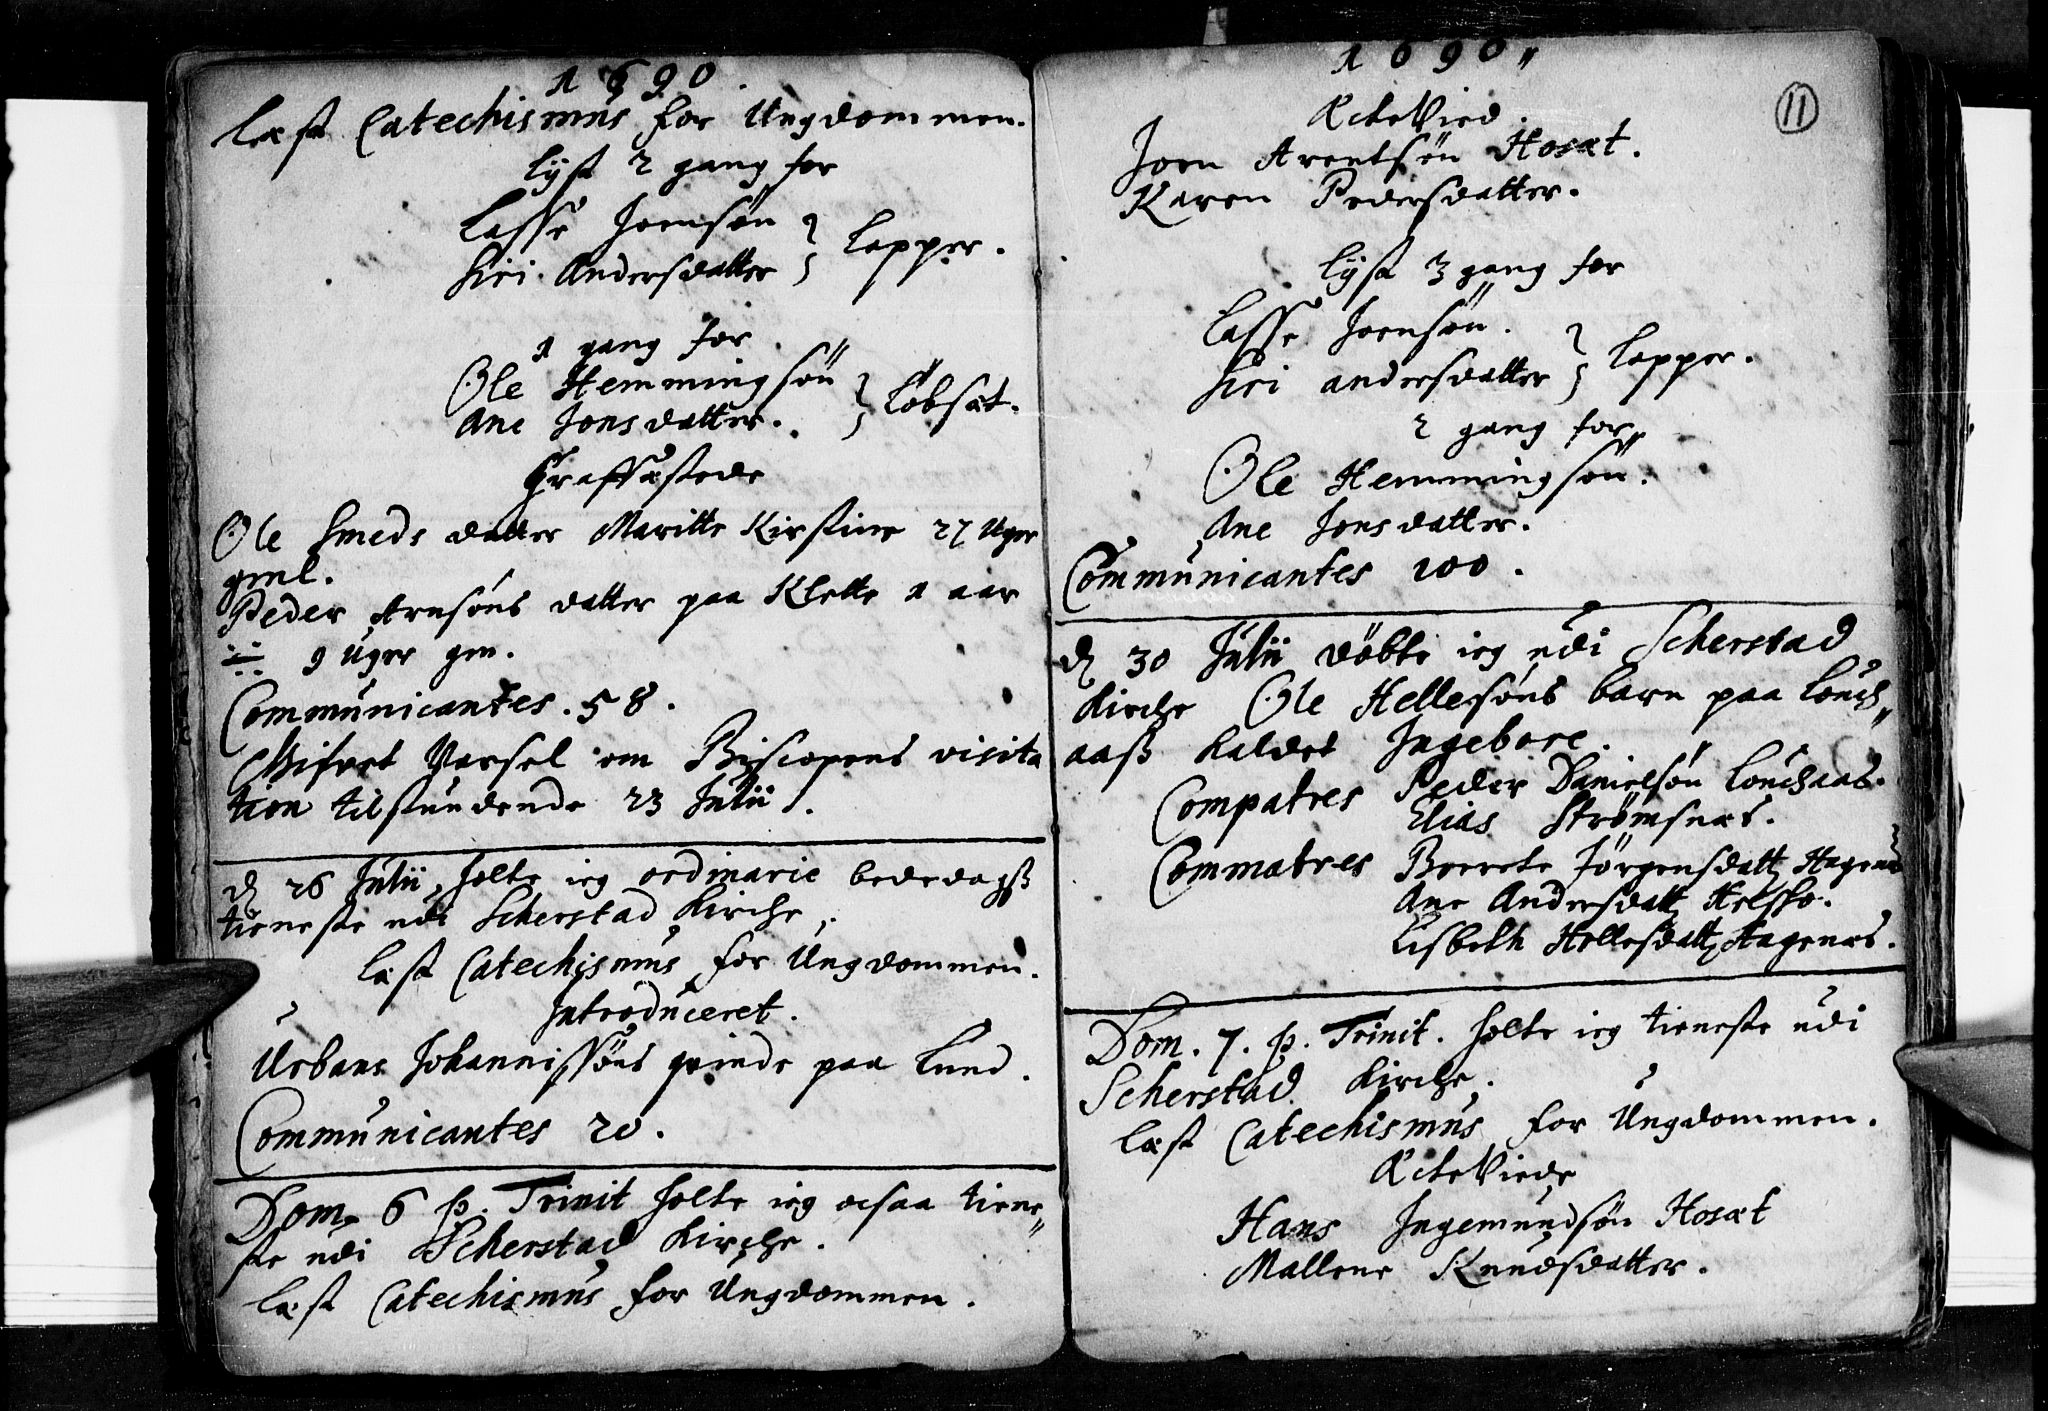 1690.
Læst Catechismus for Ungdommen.
Lyst 2 gang for
Lasse Joensøn
Siri Andersdatter } Lapper.
1 gang for
Ole Hemmingsøn
Ane Jonsdatter. } Løbsæt.
Graffæstede
Ole Smeds datter Maritte Kirstine 27 Uger
gml.
Peder Arnsøns datter paa Klette 1 aar
÷ 9 Uger gm.
Communicantes. 58.
Gifvet Varsel om Biscopens visita
tion tilstundende 23 Julii.
d 26 Julii holte ieg ordinarie bededagß
tieneste udi Scherstad Kirche.
læst Catechismus for Ungdommen.
Introduceret.
Urbans Johannissøns qvinde paa Lund.
Communicantes 20.
Dom. 6 p. Trinit holte ieg ocsaa tiene„
ste udi Scherstad Kirche.
læst Catechismus for Ungdommen.
1690„
11
Ectevied.
Joen Arentsøn Hosæt.
Karen Pedersdatter.
Lyst 3 gang for
Lasse Joensøn.
Siri andersdatter } Lapper.
2 gang for
Ole Hemmingsøn.
Ane Jonsdatter.
Communicantes 100.
d 30 Julii døbte ieg udi Scherstad
Kirche Ole Hellesøns barn paa Louchs„
aaß kaldet Ingebore.
Compatres Peder Danielsøn Louchsaas.
Elias Strømsnæs.
Commatres Berrete Jørgensdatt Hagenæs
Ane Andersdatt
Lisbeth Hellesdatt Hagenæs.
Dom. 7. p. Trinit. holte ieg tieneste udi
Scherstad Kirche.
læst Catechismus for Ungdommen.
Ecteviede
Hans Ingemundsøn Hosæt
Mallene Knudsdatter.